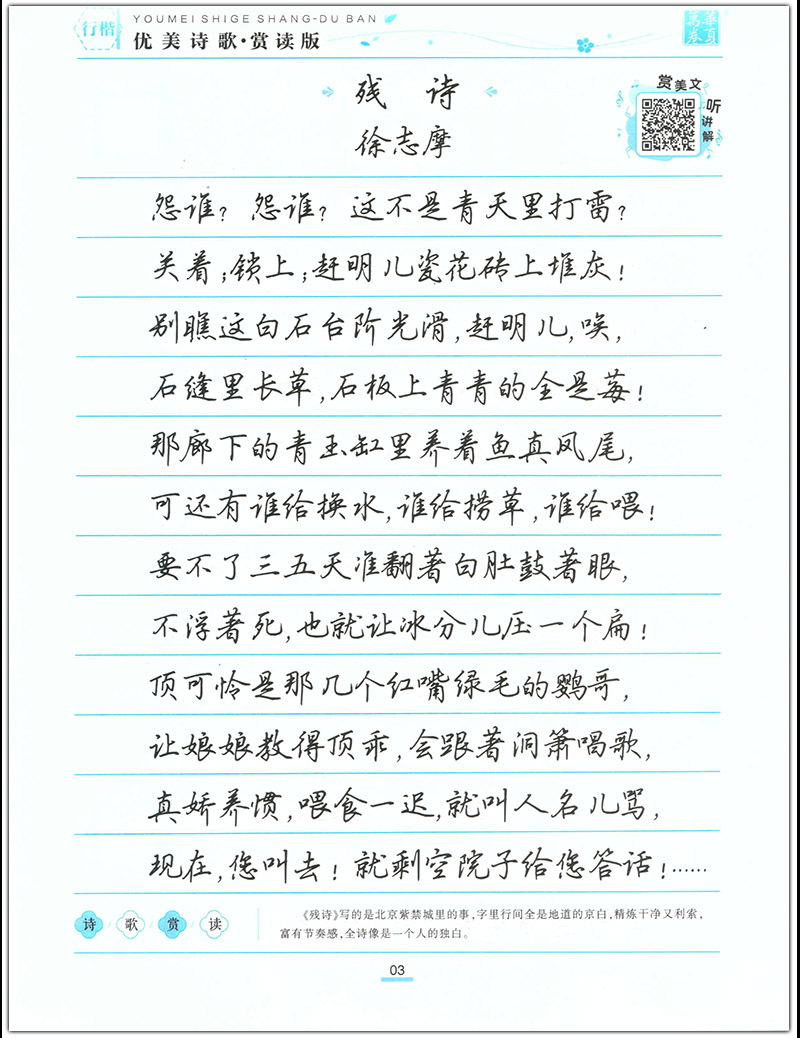 行楷
YOUMEI SHIGE SHANG-DU BAN
优美诗歌·赏读版
萬卷
華頁
赏美文
听讲解
残 诗
徐志摩
怨谁？怨谁？这不是青天里打雷？
关着；锁上；赶明儿瓷花砖上堆灰！
别瞧这白石台阶光滑，赶明儿，唉，
石缝里长草，石板上青青的全是莓！
那廊下的青玉缸里养着鱼真凤尾，
可还有谁给换水，谁给捞草，谁给喂！
要不了三五天准翻著白肚鼓著眼，
不浮著死，也就让冰分儿压一个扁！
顶可怜是那几个红嘴绿毛的鹦哥，
让娘娘教得顶乖，会跟著洞箫唱歌，
真娇养惯，喂食一迟，就叫人名儿骂，
现在，您叫去！就剩空院子给您答话！……
诗 / 歌 / 赏 / 读
《残诗》写的是北京紫禁城里的事，字里行间全是地道的京白，精炼干净又利索，
富有节奏感，全诗像是一个人的独白。
03